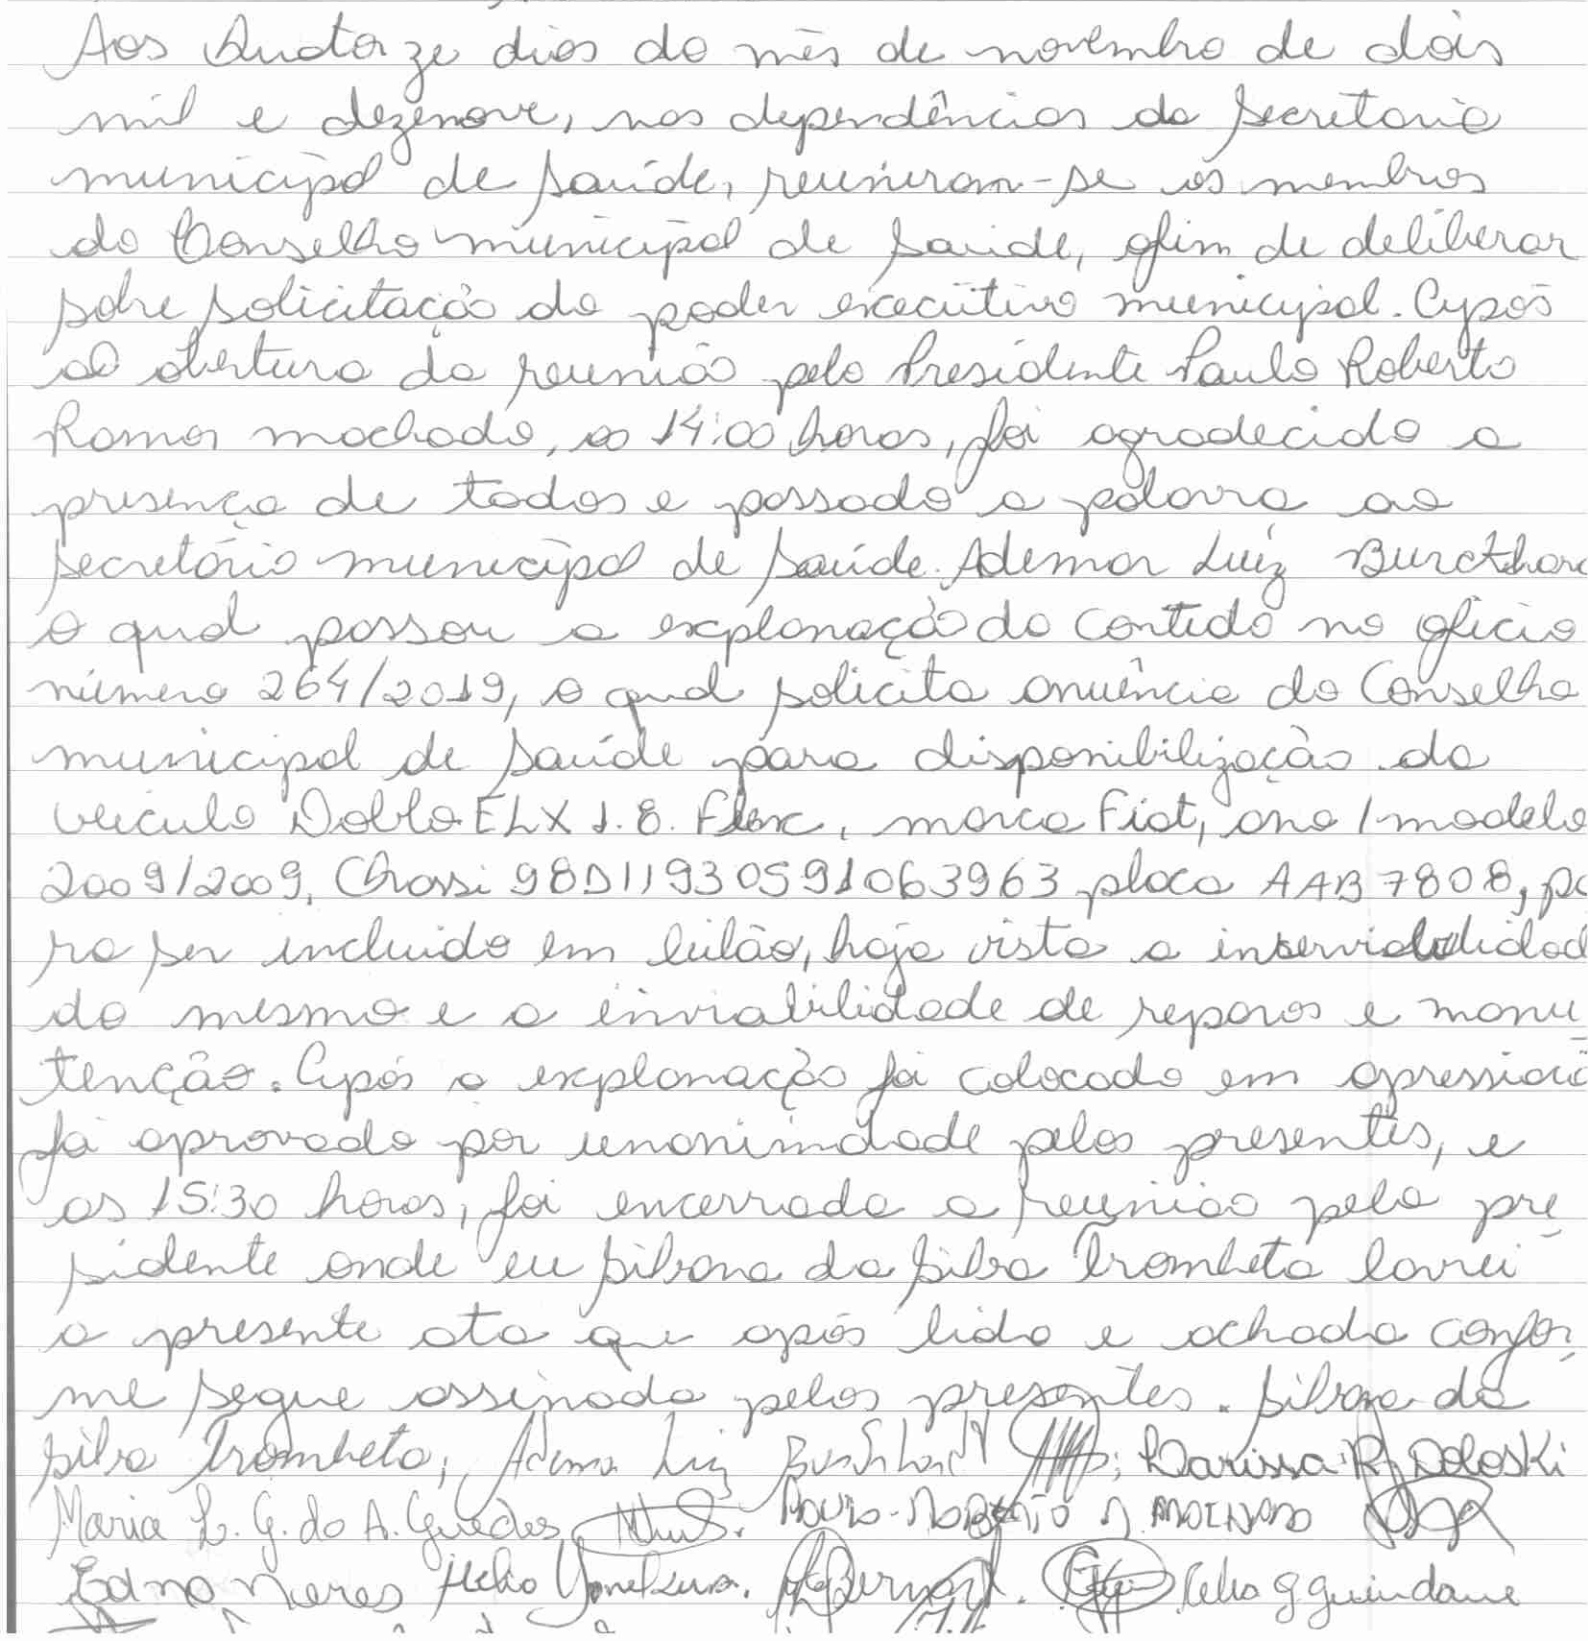 Aos Quatorze dias do mês de novembro de dois
mil e dezenove, nas dependências da Secretaria
municipal de Saúde, reuniram-se os membros
do Conselho municipal de Saúde, afim de deliberar
sobre solicitação do poder executivo municipal. Após
a abertura da reunião pelo Presidente Paulo Roberto
Ramos machado, as 14:00 horas, foi agradecido a
presença de todos e passado a palavra ao
secretário municipal de Saúde Ademar Luiz Burckhar
o qual passou a explanação do contido no ofício
número 264/2019, o qual solicita anuência do Conselho
municipal de Saúde para disponibilização do
veículo Doblo ELX 1.8. Flex, marca Fiat, ano/modelo
2009/2009, Chassi 9BD11930591063963 placa AAB 7808, pa
ra ser incluido em leilão, haja vista a inservibilidad
do mesmo e a inviabilidade de reparos e manu
tenção. Após a explanação foi colocado em apressiaçã
foi aprovado por unanimidade pelos presentes, e
as 15:30 horas, foi encerrada a reunião pelo pre
sidente onde eu Silvana da Silva Trombeta lavrei
a presente ata que após lida e achada confor
me segue assinada pelos presentes. Silvana da
Silva Trombeta, Ademar Luiz Burckhardt ; Larissa R. Doloski
Maria L. G. do A. Guedes, Paulo Roberto R. Machado
Edna Neres Helio Yonekura. Bernard. Celia G Guindane